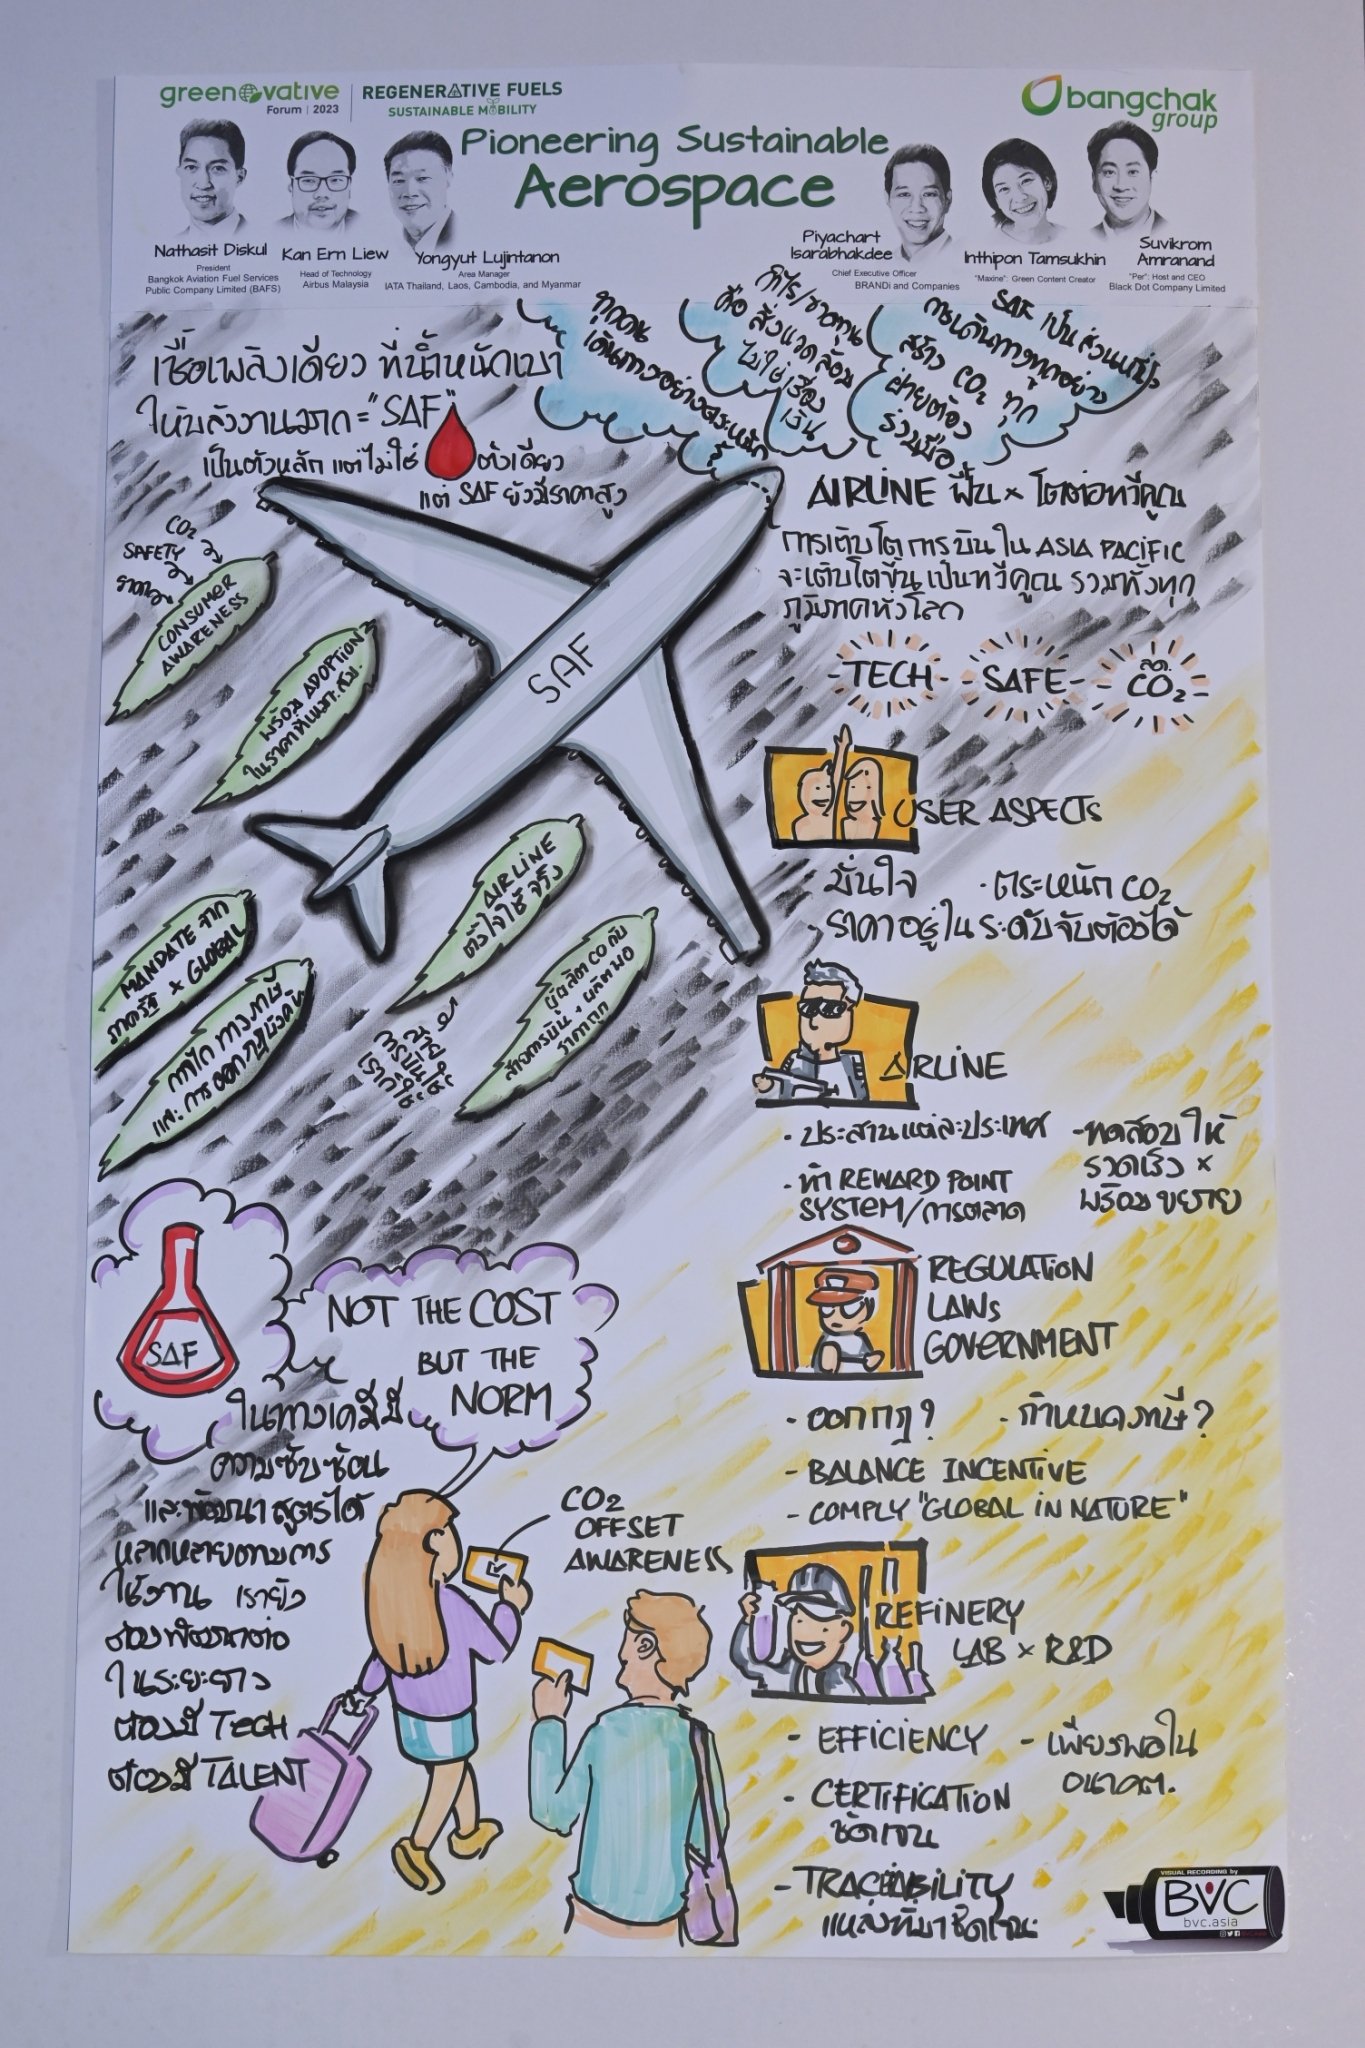 greenovative
Forum | 2023
REGENERATIVE FUELS
SUSTAINABLE MOBILITY
bangchak
group
Pioneering Sustainable
Aerospace
Nathasit Diskul
President
Bangkok Aviation Fuel Services
Public Company Limited (BAFS)
Kan Ern Liew
Head of Technology
Airbus Malaysia
Yongyut Lujintanon
Area Manager
IATA Thailand, Laos, Cambodia, and Myanmar
Piyachart
Isarabhakdee
Chief Executive Officer
BRANDi and Companies
Inthipon Tamsukhin
"Maxine": Green Content Creator
Suvikrom
Amranand
"Per"; Host and CEO
Black Dot Company Limited
เชื้อเพลิงเดียว ที่น้ำหนักเบา
ให้พลังงานมาก = "SAF"
เป็นตัวหลัก แต่ไม่ใช่ ตัวเดียว
แต่ SAF ยังมีราคาสูง
ทุกคน
เดินทางอย่างตระหนัก
รู้
กำไร/ขาดทุน
คือ สิ่งแวดล้อม
ไม่ใช่เรื่อง
เงิน
SAF เป็นส่วนหนึ่ง
การเดินทางทุกอย่าง
สร้าง CO2 ทุก
ฝ่ายต้อง
ร่วมมือ
AIRLINE ฟื้น × โตต่อทวีคูณ
การเติบโตการบินใน ASIA PACIFIC
จะเติบโตขึ้น เป็นทวีคูณ รวมทั้งทุก
ภูมิภาคทั่วโลก
TECH
SAFE
ลด
CO2
CO2
SAFETY
ราคา
CONSUMER
AWARENESS
พร้อม ADOPTION
ในราคาที่เหมาะสม.
SAF
AIRLINE
ตั้งใจใช้ จริง
สาย
การบินใช้
เราก็ใช้
ผู้ผลิต CO กับ
สายการบิน + ผลิตพอ
ราคาถูก
MANDATE จาก
ภาครัฐ × GLOBAL
กลไก ทางภาษี
และ การออกกฎบังคับ
USER ASPECTS
มั่นใจ
- ตระหนัก CO2
- ราคาอยู่ใน ระดับจับต้องได้
AIRLINE
- ประสานแต่ละประเทศ
- ทดสอบ ให้
รวดเร็ว ×
พร้อมขยาย
- ทำ REWARD POINT
SYSTEM/การตลาด
REGULATION
LAWS
GOVERNMENT
- ออกกฎ?
- กำหนดภาษี?
- BALANCE INCENTIVE
- COMPLY "GLOBAL IN NATURE"
REFINERY
LAB × R&D
- EFFICIENCY
- เพียงพอใน
อนาคต.
- CERTIFICATION
ชัดเจน
- TRACEABILITY
แหล่งที่มาชัดเจน
SAF
ในทางเคมีมี
ความซับซ้อน
และพัฒนาสูตรได้
หลากหลายตามการ
ใช้งาน เรายัง
ต้องพัฒนาต่อ
ในระยะยาว
ต้องมี TECH
ต้องมี TALENT
NOT THE COST
BUT THE
NORM
CO2
OFFSET
AWARENESS
VISUAL RECORDING by
BVC
bvc.asia